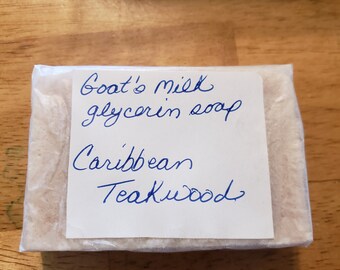 Goat's Milk
glycerin soap
Caribbean
Teakwood